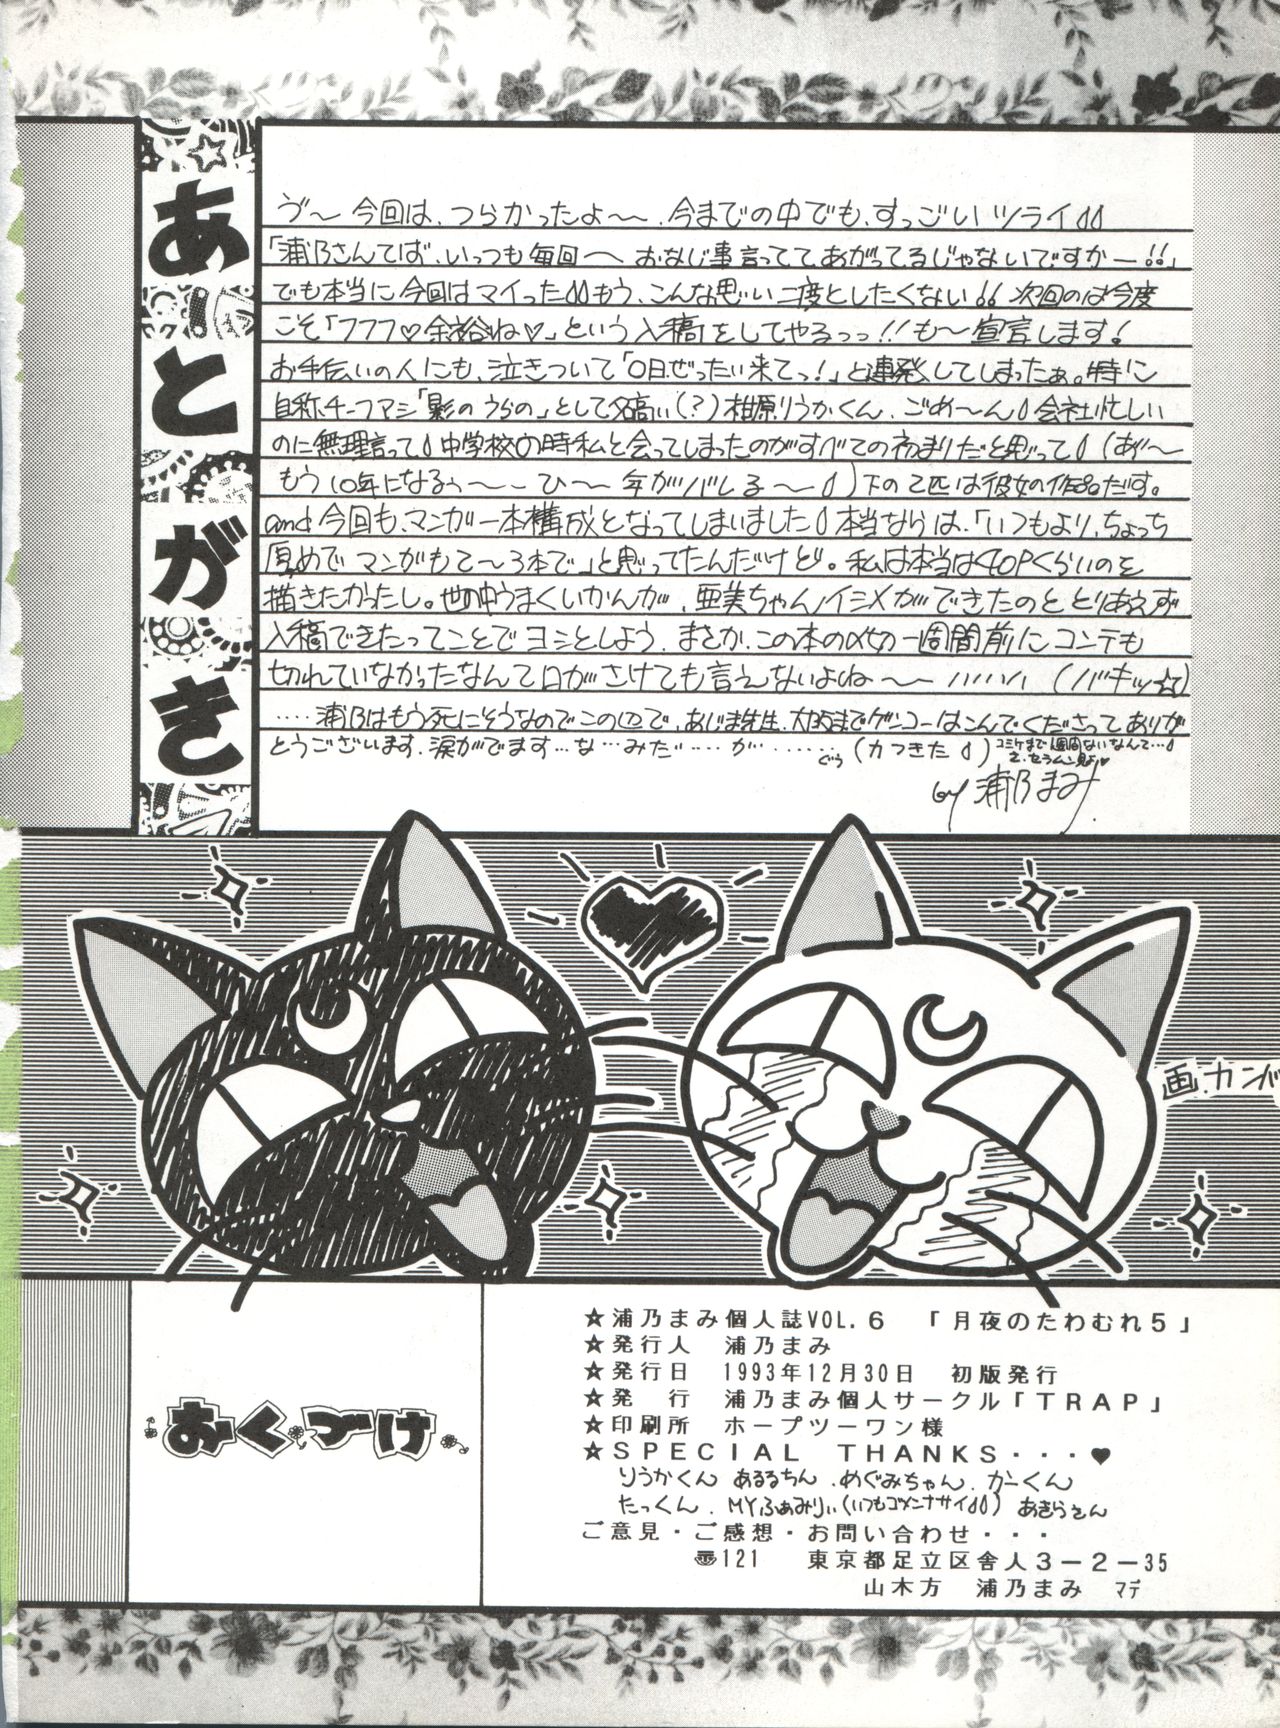 あとがき
ヴ〜今回は、つらかったよ〜〜、今までの中でも、すっごいツライ
「浦乃さんてば、いつも毎回〜おなじ事言っててあがってるじゃないですかー!!」
でも本当に今回はマイったもう、こんな思い二度としたくない 次回のは今度
こそ「フフフ♡余裕ね♡」という入稿をしてやるっっ!!も〜宣言します!
お手伝いの人にも、泣きついて「〇日ぜったい来てっ!」と連発してしまったぁ。特に
自称チーフアシ「影のうらの」として名高い(?)相原りうかくん、ごめ〜ん 会社忙しい
のに無理言って 中学校の時私と会ってしまったのがすべての初まりだと思って (あ〜
もう10年になるぅ〜〜 ひ〜年がバレる〜)下の2匹は彼女の作品だす。
and今回も、マンガ一本構成となってしまいました 本当ならは、「いつもより、ちょっち
厚めでマンガもて〜3本で」と思ってたんだけど。私は本当は40Pくらいのを
描きたかったし。世の中うまくいかんが、亜美ちゃんイジメができたのととりあえず
入稿できたってことでヨシとしよう、まさか、この本の〆切の一週間前にコンテも
切れていなかったなんて口がさけても言えないよね〜〜ハハハ(バキッ☆)
‥‥浦乃はもう死にそうなのでこの辺で、あじま先生、大阪までゲンコーはこんでくださってありが
とうございます、涙がでます…な…みだ‥‥が‥‥‥ぐぅ(カつきた)
コミケまで1週間ないなんて…
by 浦乃まみ
画.カンガ
おくづけ
☆浦乃まみ個人誌VOL.6 「月夜のたわむれ5」
☆発行人 浦乃まみ
☆発行日 1993年12月30日 初版発行
☆発 行 浦乃まみ個人サークル「TRAP」
☆印刷所 ホープツーワン様
☆SPECIAL THANKS・・・♥
りうかくん あるるちん、めぐみちゃん、かーくん
たっくん、MYふぁみりぃ(いつもゴメンナサイ) あきらさん
ご意見・ご感想・お問い合わせ・・・
〠121 東京都足立区舎人3-2-35
山木方 浦乃まみ マデ